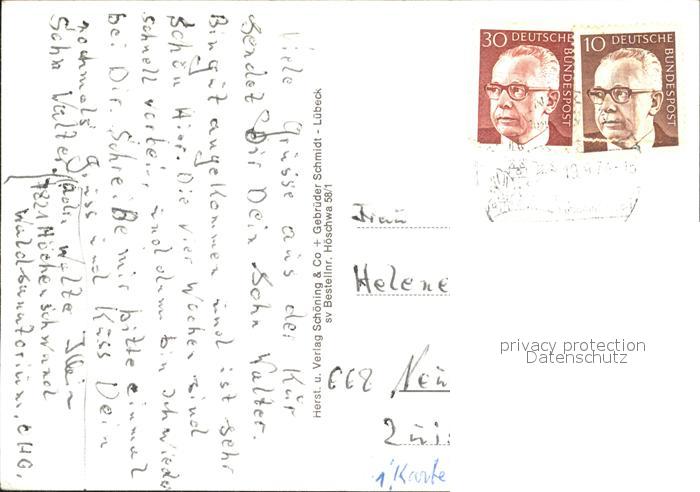 Viele Grüsse aus der Kur
sendet Dir Dein Sohn Walter.
Bin gut angekommen und ist sehr
schön hier. Die vier Wochen sind
schnell vorbei und dann bin ich wieder
bei Dir. Schreibe mir bitte einmal
nochmals Gruss und Kuss Dein
Sohn Walter
Walter
7821 Höchenschwand
Waldsanatorium,
Herst. u. Verlag Schöning & Co + Gebrüder Schmidt - Lübeck
sv Bestellnr. Höschwa 58/1
30 DEUTSCHE BUNDESPOST
10 DEUTSCHE BUNDESPOST
Frau
Helene
668
1 Karte
privacy protection
Datenschutz